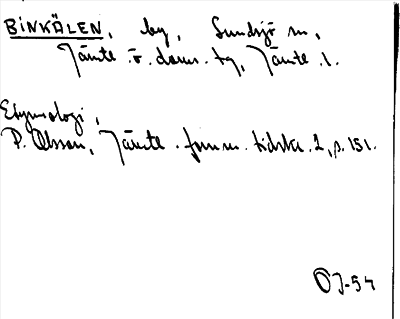 BINKÄLEN, by, Sundsjö sn,
Jämtl. ö. doms. tg, Jämtl. l.
Etymologi,
P. Olsson, Jämtl. fornm. tidskr. 2, s. 151.
OJ-54